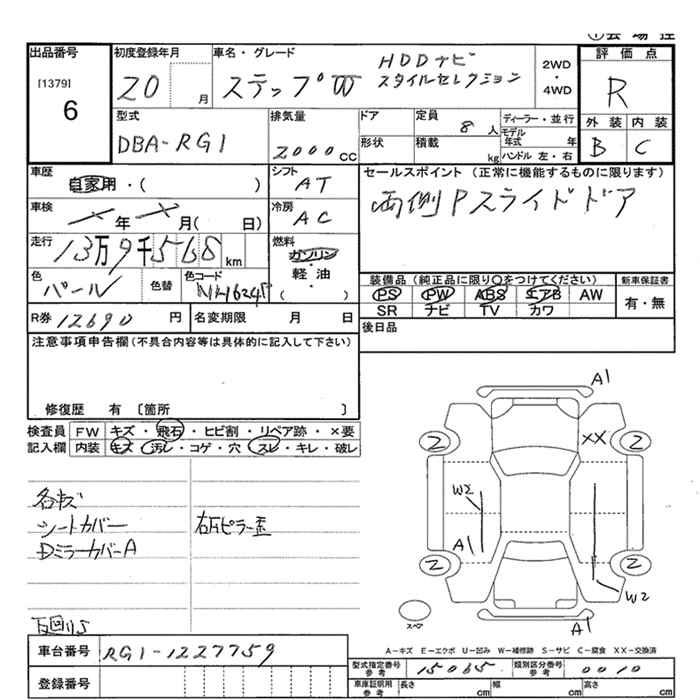 出品番号
[1379]
6
初度登録年月
20 月
車名・グレード
ステップW HDDナビ
スタイルセレクション
2WD
・
4WD
評価点
R
外装 内装
B C
型式
DBA-RG1
排気量
2000cc
ドア
形状
定員
8人
積載
kg
ディーラー・並行
モデル年式 年
ハンドル 左・右
車歴
自家用・( )
シフト
AT
セールスポイント (正常に機能するものに限ります)
両側Pスライドドア
車検
年 月( 日)
冷房
AC
走行
13万9千568km
燃料
ガソリン
・
軽油
( )
色
パール
色替
色コード
装備品 (純正品に限り〇をつけてください)
PS PW ABS エアB AW
SR ナビ TV カワ
新車保証書
有・無
R券 12690円
名変期限 月 日
後日品
注意事項申告欄(不具合内容等は具体的に記入して下さい)
修復歴 有 〔箇所 〕
検査員記入欄
FW キズ・飛石・ヒビ割・リペア跡・×要
内装 キズ・汚レ・コゲ・穴・スレ・キレ・破レ
各キズ
シートカバー
DミラーカバーA
右Bピラー歪
A1
XX
2 2
W2
A1
2 2
W2
A1
スペア
A-キズ E-エクボ U-凹み W-補修跡 S-サビ C-腐食 XX-交換済
車台番号
RG1-1227759
登録番号
型式指定番号参考 15065
類別区分番号参考 0010
車庫証明用参考 長さ cm 幅 cm 高さ cm